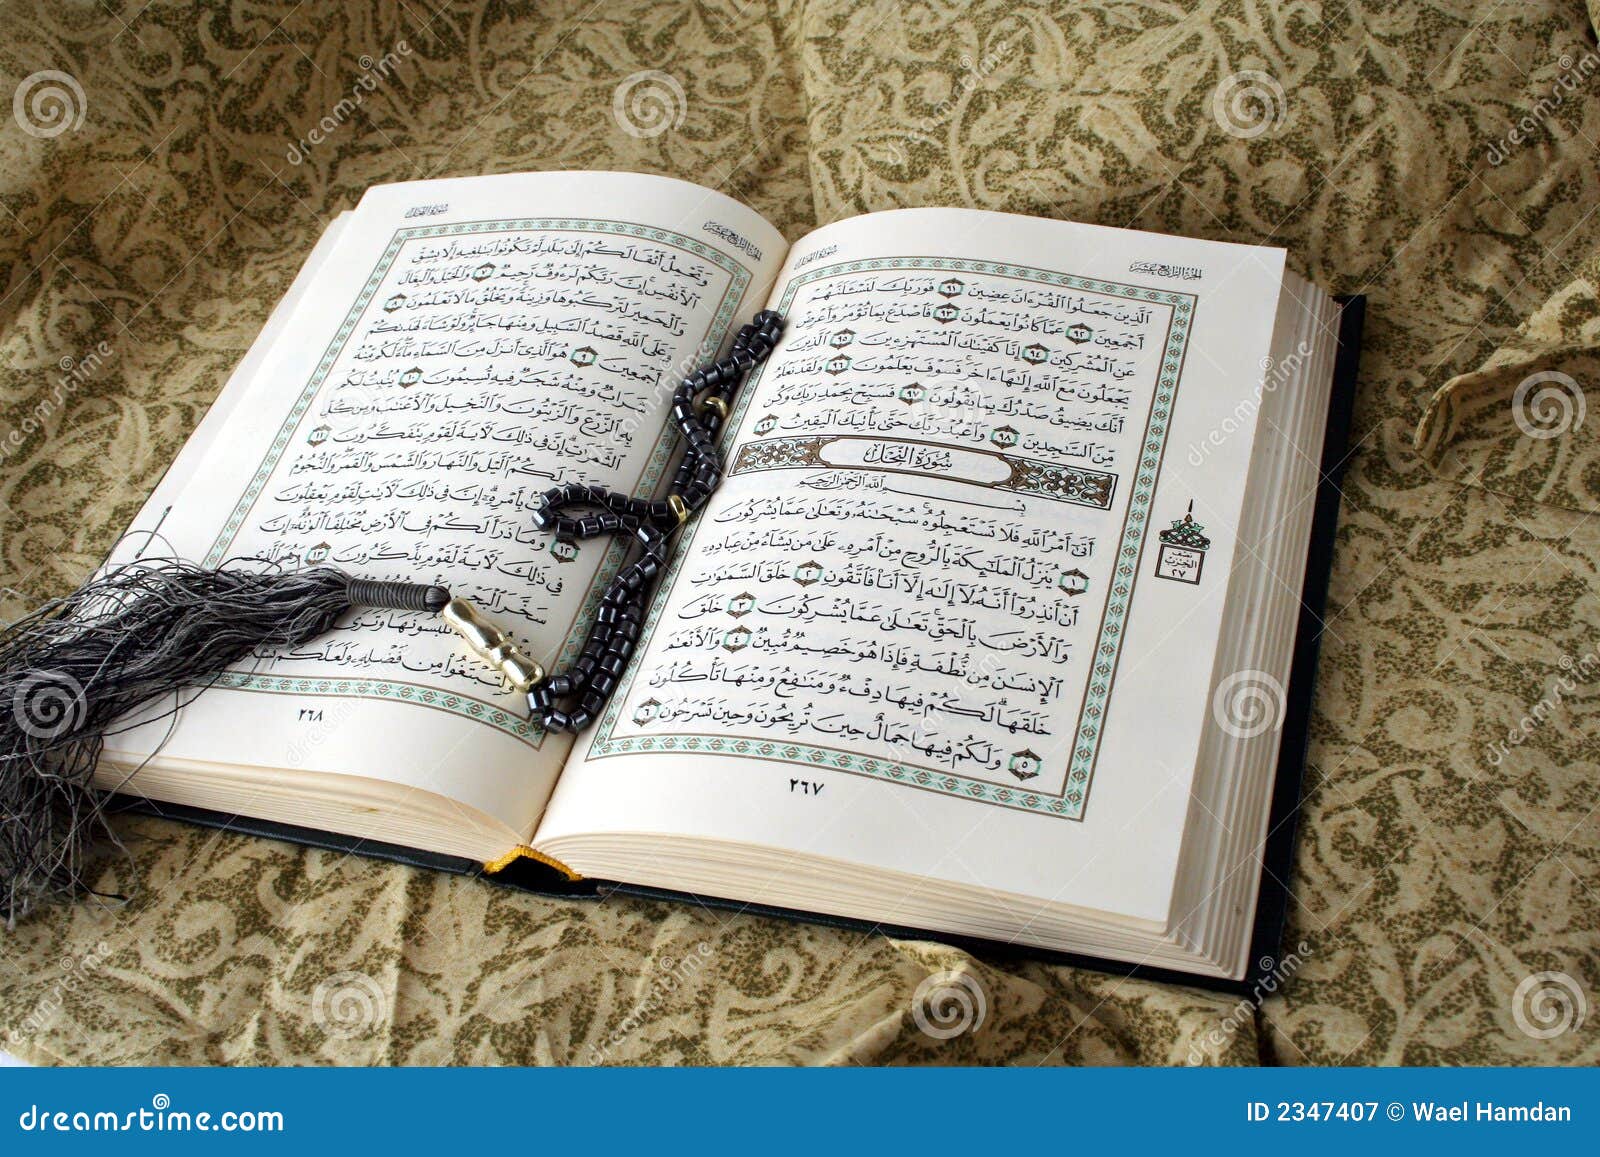 سورة النحل
الجزء الرابع عشر
الَّذِينَ جَعَلُوا الْقُرْءَانَ عِضِينَ ٩١ فَوَرَبِّكَ لَنَسْـَٔلَنَّهُمْ
أَجْمَعِينَ ٩٢ عَمَّا كَانُوا يَعْمَلُونَ ٩٣ فَاصْدَعْ بِمَا تُؤْمَرُ وَأَعْرِضْ
عَنِ الْمُشْرِكِينَ ٩٤ إِنَّا كَفَيْنَاكَ الْمُسْتَهْزِءِينَ ٩٥ الَّذِينَ
يَجْعَلُونَ مَعَ اللَّهِ إِلَٰهًا ءَاخَرَ فَسَوْفَ يَعْلَمُونَ ٩٦ وَلَقَدْ نَعْلَمُ
أَنَّكَ يَضِيقُ صَدْرُكَ بِمَا يَقُولُونَ ٩٧ فَسَبِّحْ بِحَمْدِ رَبِّكَ وَكُنْ
مِنَ السَّاجِدِينَ ٩٨ وَاعْبُدْ رَبَّكَ حَتَّىٰ يَأْتِيَكَ الْيَقِينُ ٩٩
سُورَةُ النَّحْلِ
بِسْمِ اللَّهِ الرَّحْمَٰنِ الرَّحِيمِ
أَتَىٰ أَمْرُ اللَّهِ فَلَا تَسْتَعْجِلُوهُ سُبْحَانَهُ وَتَعَالَىٰ عَمَّا يُشْرِكُونَ
١ يُنَزِّلُ الْمَلَائِكَةَ بِالرُّوحِ مِنْ أَمْرِهِ عَلَىٰ مَنْ يَشَاءُ مِنْ عِبَادِهِ
أَنْ أَنْذِرُوا أَنَّهُ لَا إِلَٰهَ إِلَّا أَنَا فَاتَّقُونِ ٢ خَلَقَ السَّمَاوَاتِ
وَالْأَرْضَ بِالْحَقِّ تَعَالَىٰ عَمَّا يُشْرِكُونَ ٣ خَلَقَ
الْإِنْسَانَ مِنْ نُطْفَةٍ فَإِذَا هُوَ خَصِيمٌ مُبِينٌ ٤ وَالْأَنْعَامَ
خَلَقَهَا لَكُمْ فِيهَا دِفْءٌ وَمَنَافِعُ وَمِنْهَا تَأْكُلُونَ
٥ وَلَكُمْ فِيهَا جَمَالٌ حِينَ تُرِيحُونَ وَحِينَ تَسْرَحُونَ ٦
٢٦٧
نصف
الحزب
٢٧
الجزء الرابع عشر
سورة النحل
وَتَحْمِلُ أَثْقَالَكُمْ إِلَىٰ بَلَدٍ لَمْ تَكُونُوا بَالِغِيهِ إِلَّا بِشِقِّ
الْأَنْفُسِ إِنَّ رَبَّكُمْ لَرَءُوفٌ رَحِيمٌ ٧ وَالْخَيْلَ وَالْبِغَالَ
وَالْحَمِيرَ لِتَرْكَبُوهَا وَزِينَةً وَيَخْلُقُ مَا لَا تَعْلَمُونَ ٨
وَعَلَى اللَّهِ قَصْدُ السَّبِيلِ وَمِنْهَا جَائِرٌ وَلَوْ شَاءَ لَهَدَاكُمْ
أَجْمَعِينَ ٩ هُوَ الَّذِي أَنْزَلَ مِنَ السَّمَاءِ مَاءً لَكُمْ مِنْهُ
شَرَابٌ وَمِنْهُ شَجَرٌ فِيهِ تُسِيمُونَ ١٠ يُنْبِتُ لَكُمْ
بِهِ الزَّرْعَ وَالزَّيْتُونَ وَالنَّخِيلَ وَالْأَعْنَابَ وَمِنْ كُلِّ
الثَّمَرَاتِ إِنَّ فِي ذَٰلِكَ لَآيَةً لِقَوْمٍ يَتَفَكَّرُونَ ١١
لَكُمُ اللَّيْلَ وَالنَّهَارَ وَالشَّمْسَ وَالْقَمَرَ وَالنُّجُومُ
بِأَمْرِهِ إِنَّ فِي ذَٰلِكَ لَآيَاتٍ لِقَوْمٍ يَعْقِلُونَ
١٢ وَمَا ذَرَأَ لَكُمْ فِي الْأَرْضِ مُخْتَلِفًا أَلْوَانُهُ إِنَّ
فِي ذَٰلِكَ لَآيَةً لِقَوْمٍ يَذَّكَّرُونَ ١٣ وَهُوَ الَّذِي
سَخَّرَ الْبَحْرَ
تَلْبَسُونَهَا وَتَرَى
وَلِتَبْتَغُوا مِنْ فَضْلِهِ وَلَعَلَّكُمْ
٢٦٨
dreamstime.com
ID 2347407 © Wael Hamdan